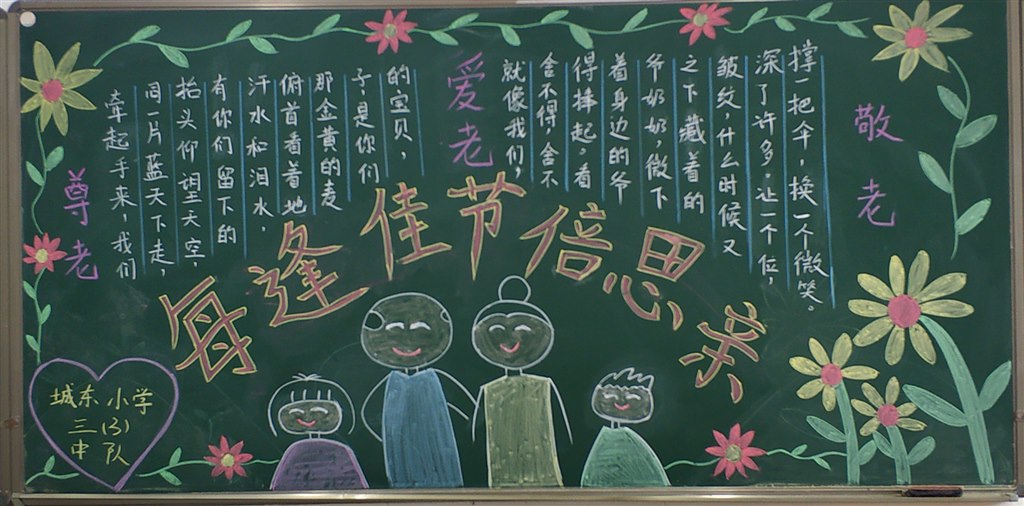 每逢佳节倍思亲
尊老
爱老
敬老
牵起手来，我们
同一片蓝天下走，
抬头仰望天空，
有你们留下的
汗水和泪水，
俯首看着地
那金黄的麦
子是你们
的宝贝，
就像我们，
舍不得，舍不
得捧起.看
着身边的爷
爷奶奶，微下
之下藏着的
皱纹，什么时候又
深了许多.让一个位，
撑一把伞，换一个微笑。
城东小学
三(3)
中队